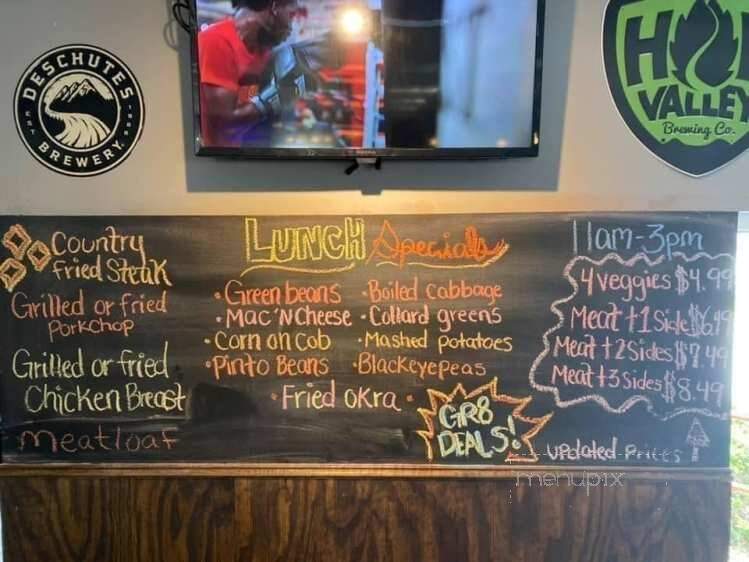 DESCHUTES
BREWERY
HOP
VALLEY
Brewing Co.
Country
Fried Steak
Grilled or fried
Porkchop
Grilled or fried
Chicken Breast
Meatloaf
LUNCH Specials
• Green beans
• Mac 'N Cheese
• Corn on Cob
• Pinto Beans
• Boiled Cabbage
• Collard greens
• Mashed potatoes
• Blackeyepeas
• Fried okra •
GR8
DEALS!
11am-3pm
4 veggies $4.99
Meat +1 Side $6.49
Meat +2 Sides $7.49
Meat +3 Sides $8.49
updated Prices
menupix